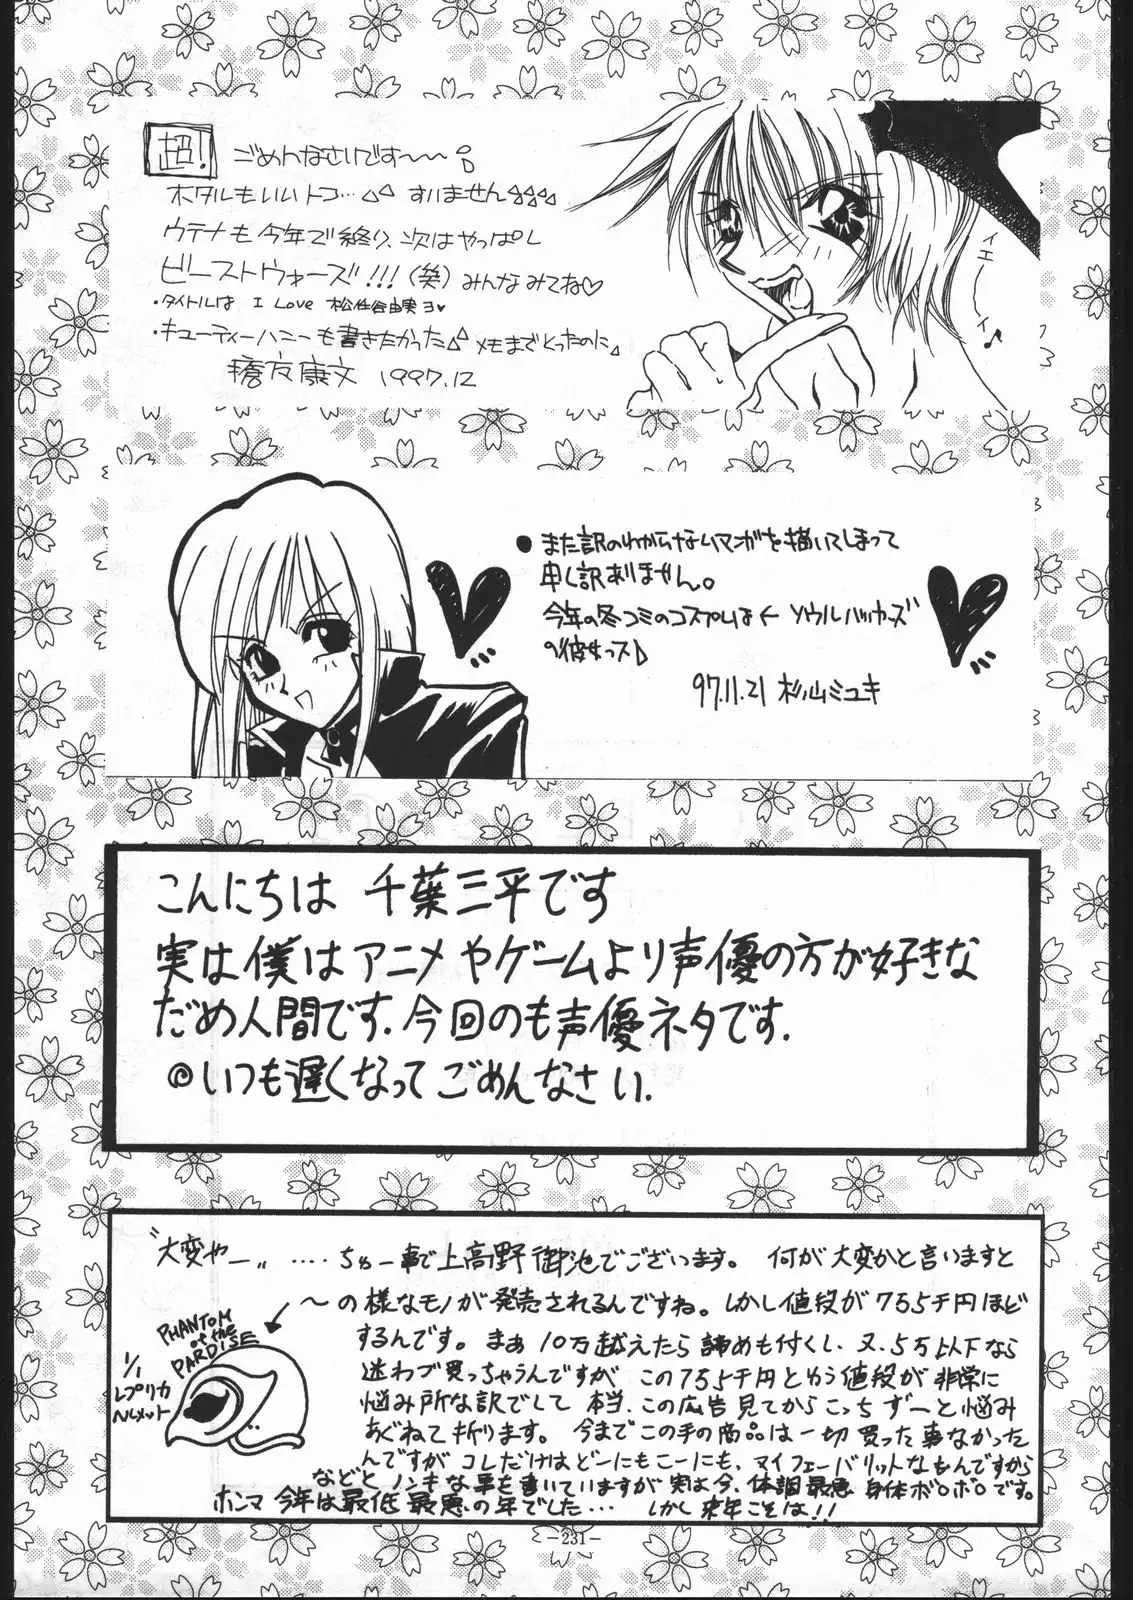 超!ごめんなさいです〜〜
ホタルもいいトコ… すいません
ウテナも今年で終り、次はやっぱし
ビーストウォーズ!!!(笑)みんなみてね♡
・タイトルは I Love 松任谷由実 ヨ♥
・キューティーハニーも書きたかった メモまでとったのに
康文 1997.12
イエーイ♪
●また訳のわからないマンガを描いてしまって
申し訳ありません。
今年の冬コミのコスプレは← ソウルハッカーズ
の彼女っス
97.11.21 杉山ミユキ
こんにちは 千葉三平です
実は僕はアニメやゲームより声優の方が好きな
だめ人間です.今回のも声優ネタです.
◎いつも遅くなってごめんなさい.
〝大変やー〟……ちゅー事で上高野御池でございます。 何が大変かと言いますと
〜の様なモノが発売されるんですね。しかし値段が75.5千円ほど
するんです。まぁ10万越えたら諦めも付くし、又、5万以下なら
迷わず買っちゃうんですが この75.5千円という値段が非常に
悩み所な訳でして 本当、この広告見てからこっちずーと悩み
あぐねて折ります。今まで この手の商品は一切買った事なかった
んですが コレだけはどーにもこーにも、マイフェーバリットなもんですから
などと ノンキな事を書いていますが 実は今、体調最悪 身体ボロボロです。
ホンマ今年は最低最悪の年でした… しかし来年こそは!!
PHANTOM
of the
PARDISE
1/1
レプリカ
ヘルメット
—231—